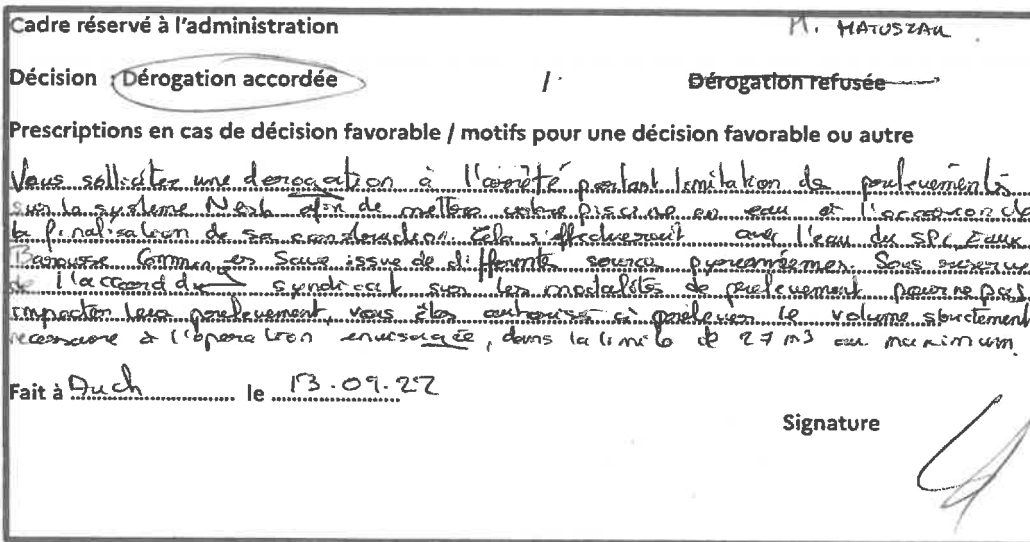 Cadre réservé à l'administration M. MATUSZAK
Décision : Dérogation accordée / Dérogation refusée
Prescriptions en cas de décision favorable / motifs pour une décision favorable ou autre
Vous sollicitez une derogation à l'arrêté portant limitation de prelevements
sur la systeme Neste afin de mettre votre piscine en eau et l'occasion de
la finalisation de sa construction. Cela s'effectuerait avec l'eau du Eaux
Barousse Comminges Save issue de differentes sources pyreneennes. Sous reserve
de l'accord du syndicat sur les modalités de prelevement pour ne pas
impacter leur prelevement, vous êtes autorisé à prelever le volume strictement
necessaire à l'operation envisagée, dans la limite de 27 m3 au maximum.
Fait à Auch le 13.09.22
Signature